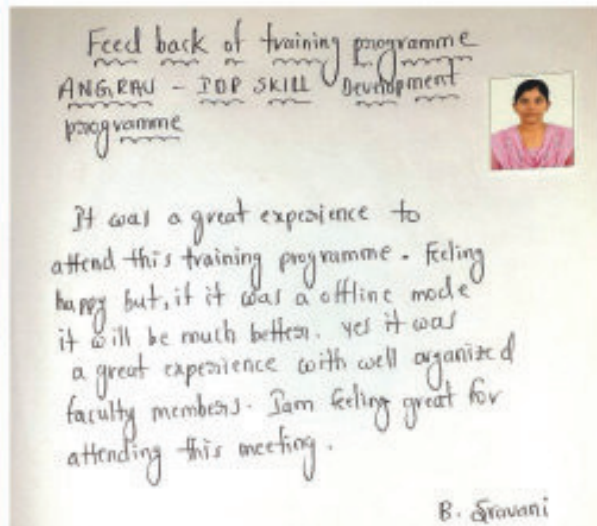 Feed back of training programme
ANGRAU - IDP SKILL Development
programme
It was a great experience to
attend this training programme. Feeling
happy but, if it was a offline mode
it will be much better. yes it was
a great experience with well organized
faculty members. Iam feeling great for
attending this meeting.
B. Sravani